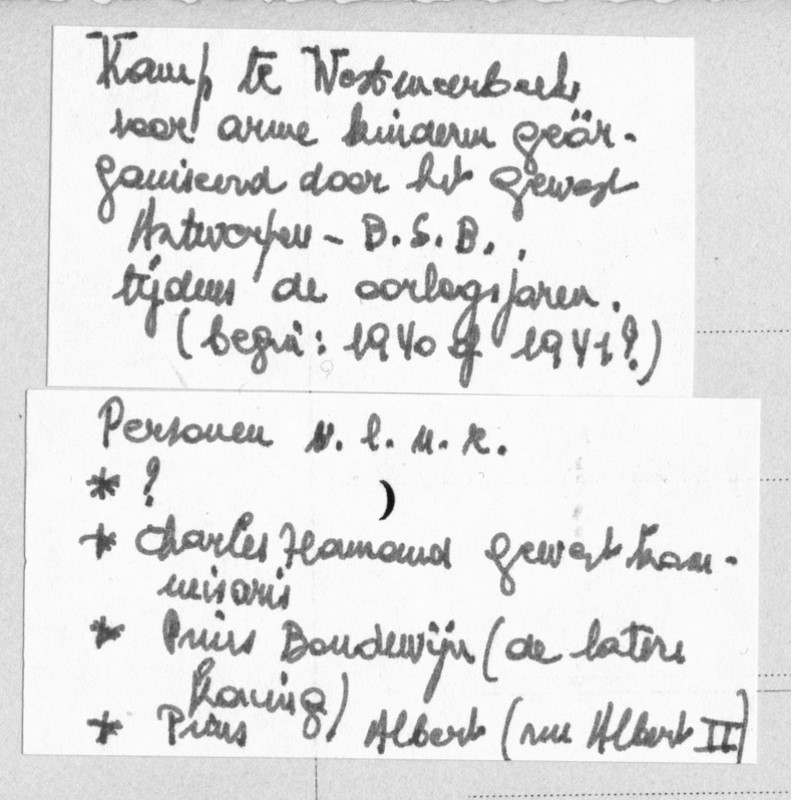 Kamp te Westmeerbeek
voor arme kinderen geör-
ganiseerd door het gewest
Antwerpen - B.S.B.,
tijdens de oorlogsjaren.
(begin: 1940 of 1941?)
Personen v. l. n. r.
* ?
* Charles Hamand gewestkom-
misaris
* Prins Boudewijn (de latere
koning)
* Prins Albert (nu Albert II)